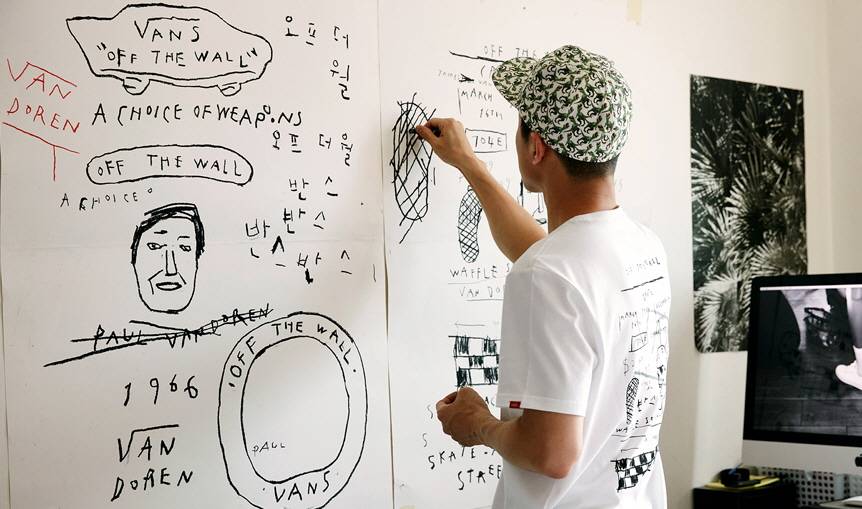 VANS
"OFF THE WALL"
오프더
월
VAN
DOREN
A CHOICE OF WEAPONS
오프더월
OFF THE WALL
A CHOICE
반스
반스
반스
반스
PAUL VAN DOREN
1966
VAN
DOREN
OFF THE WALL
PAUL
VANS
OFF THE
MARCH
16TH
704E
WAFFLE S
VAN DO
SKATE
STREE